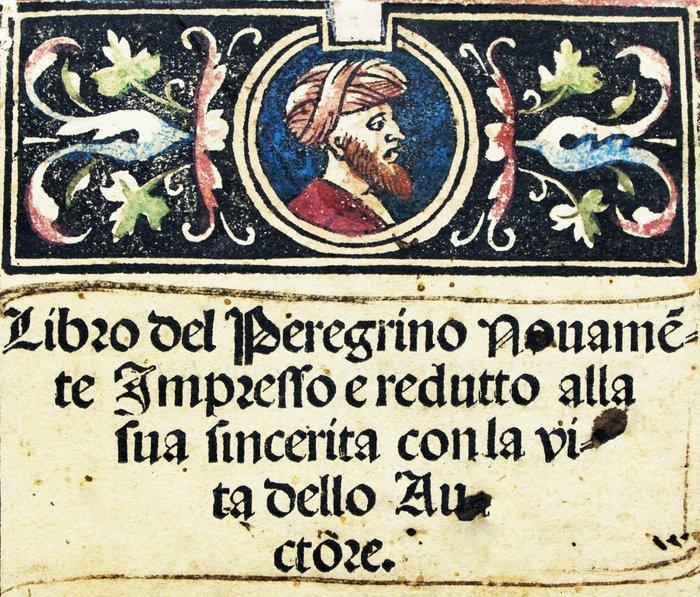 Libro del Peregrino Nouamē-
te Impresso e redutto alla
sua sincerita con la vi-
ta dello Au
ctore.